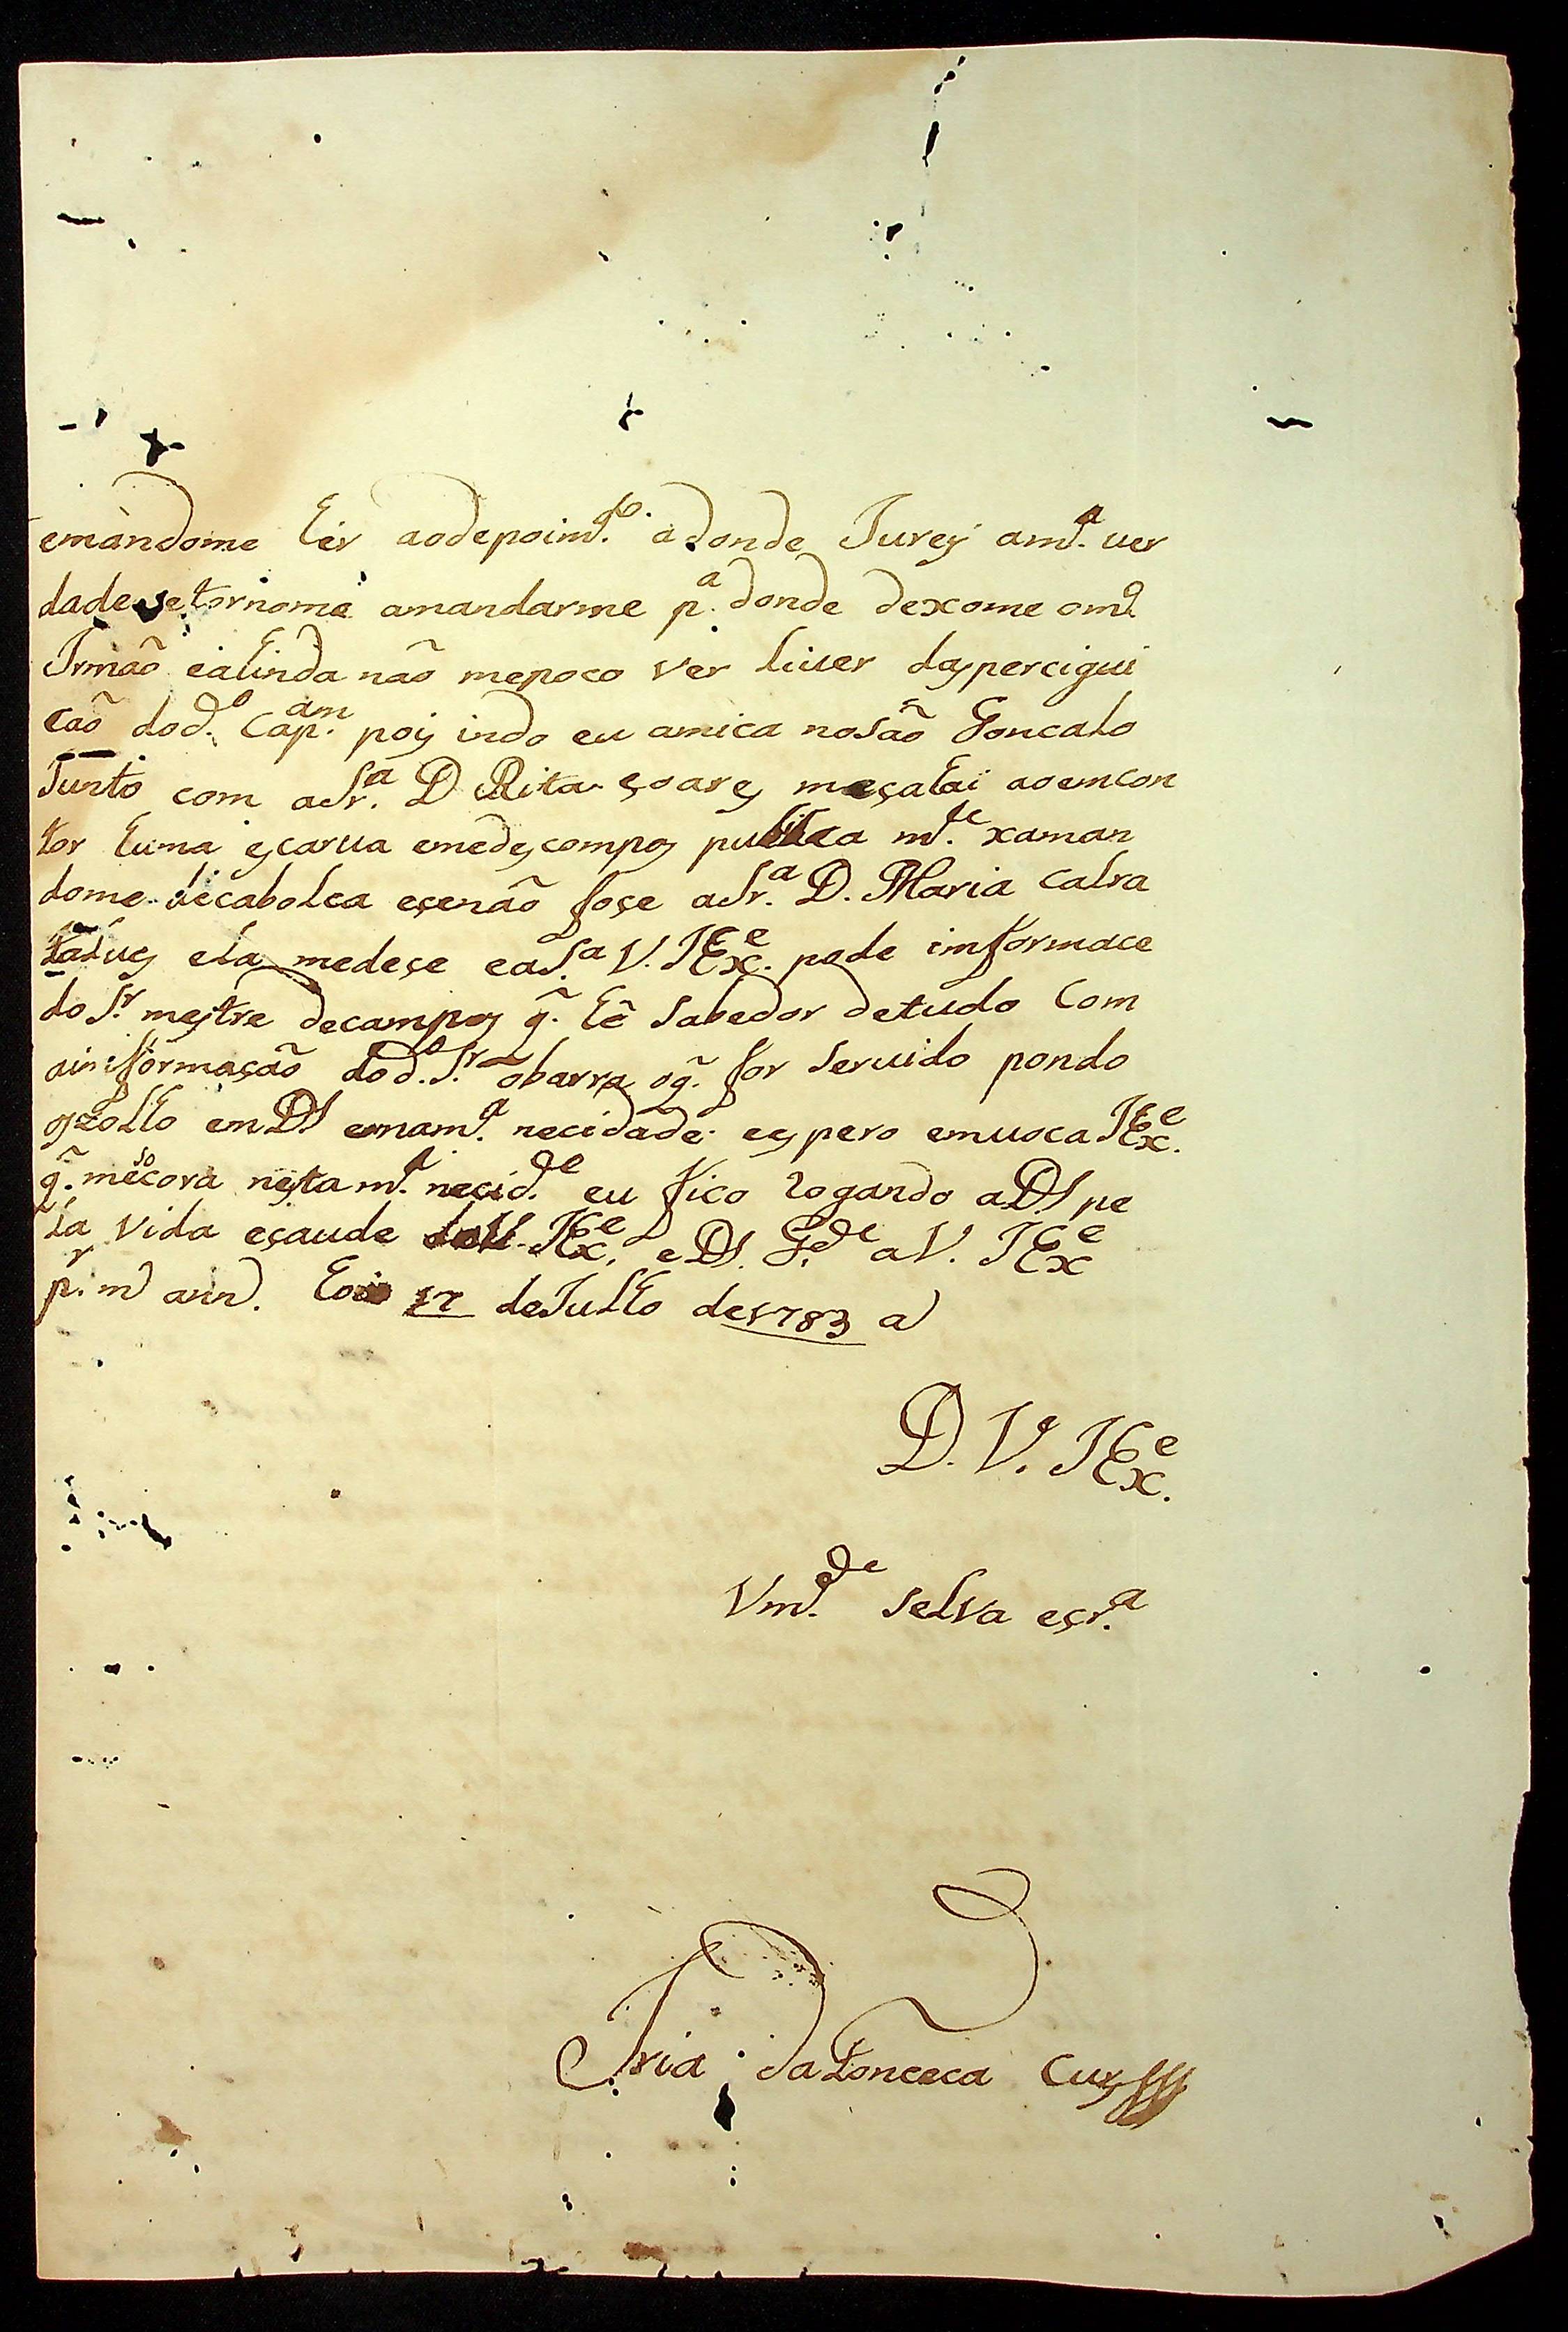 emandome hir aodepoim.to adonde Jurey am.a uer
dade etornome amandarme p.a donde dexome omo
Irmaõ eahinda naõ mepoco ver liuer daspercigui
caõ dod.o Cap.am pois indo eu amica nosaõ Goncalo
Junto com aSr.a D Rita çoares meçahi aoemcon
tor huma escarua emedescompos publica m.te xaman
dome decabolca eçenaõ foçe aSr.a D. Maria calva
ela medeçe eaS.a V. IEx.e pode imformace
do S.r mestre decampos q̃. hẽ Sabedor detudo Com
ainformaçaõ dod.o S.r obarra oq̃. for Seruido pondo
oszolho em Ds emam.a necidade espero emuoca IEx.e
q̃. mesocora nesta m.a necid.e eu fico rogando aDs pe
la vida eçaude IEx.e e Ds. G.de aV. IExe
p.r m ann. 17 deJulho de1783 a
D. V. IEx.e
Vm.de Selva eçr.a
Iria daFonceca